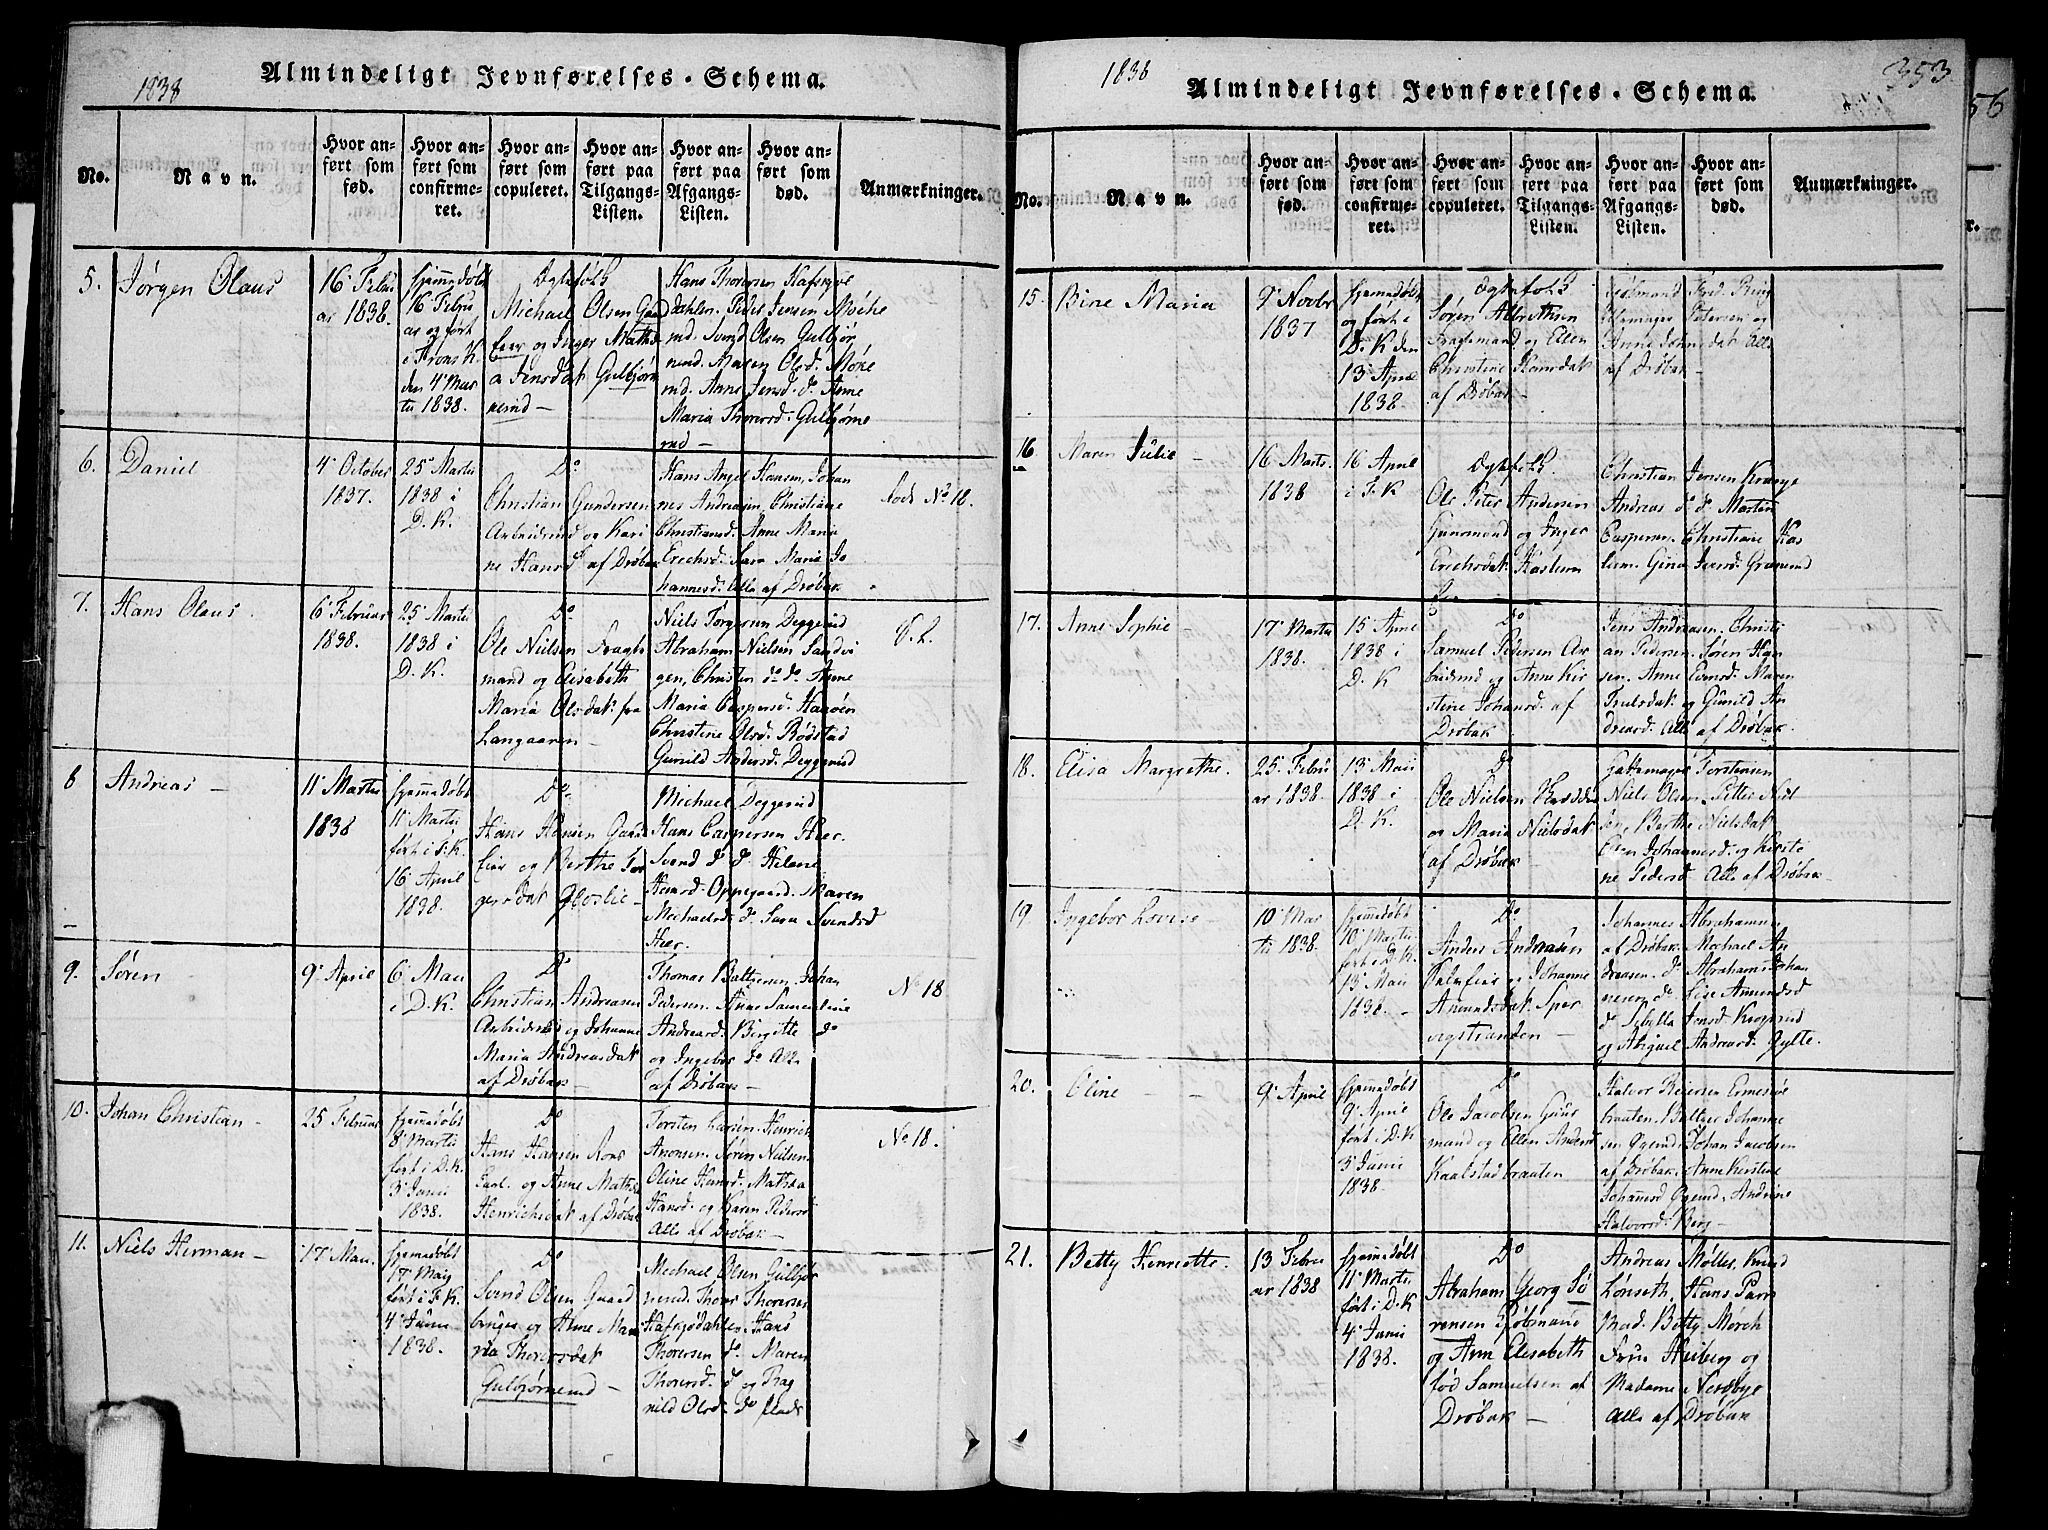 1838
Almindeligt Jevnførelses-Schema.
No.
Navn.
Hvor anført som fød.
Hvor anført som confirmeret.
Hvor anført som copuleret.
Hvor anført paa Tilgangs-Listen.
Hvor anført paa Afgangs-Listen.
Hvor anført som død.
Anmærkninger.
5. Jørgen Olaus
16 Febru
ar 1838.
hjemmedøbt
16 Febru
ar og ført
i Frons K.
den 4 Mar
tii 1838.
Ægtefolk
Michael Olsen Gaard
feier og Inger Mathe
a Jensdat Gulbjørn
rud —
Hans Thoresen Hafskjøl
dahlen. Peder Jensen
Svend Olsen Gulbjør
nerud. Maren Olsd.
Anne Jensd. do Anne
Maria Thoresd. Gulbjørne
rud —
6. Daniel
4 October
1837.
25 Martii
1838 i
D. K.
Do
Christian Gundersen
Arbeidsmd og Kari
ne Hansd af Drøbak
Hans Hansen, Johan
nes Andreasen, Christiane
Christiansd. Anne Maria
Erichsd. Sara Maria Jo
hannesd. alle af Drøbak
No 18.
7. Hans Olaus
6 Februar
1838.
25 Martii
1838 i
D. K.
Do
Ole Nielsen Fragt
mand og Elisabeth
Maria Olsdat. fra
Langaaren —
Niels Torgersen Deggerud
Abraham Nielsen Sandvi
gen, Christen do do Anne
Maria Caspersd. Haaøen
Christine Olsd. Rødstad
Gunild Andersd. Deggerud
8 Andreas —
11 Martii
1838
hjemmedøbt
11 Martii
ført i F. K.
16 April
1838.
Do
Hans Hansen Gaard
feier og Berthe Tor
gersdat Glaslie —
Michael Deggerud
Hans Caspersen Heer.
Svend do do Helene
Hansd. Oppegaard. Maren
Michaelsd. do Sara Svendsd
Heer.
9. Søren
9 April
6 Maii
i D. K.
Do
Christian Andreasen
Arbeidsmd og Johanne
Maria Andreasdat
af Drøbak —
Thomas Baltzersen, Johan
Pedersen
Andreasd. Birgitte do
og Ingebor do Alle
af Drøbak —
No 18
10. Johan Christian —
25 Februar
hjemmedøbt
8 Martii
ført i D. K.
3 Junii
1838.
Do
Hans Hansen
og Anne Mathea
Henrichsdat af Drøbak
Torsten Larsen, Henrich
Anonsen. Søren Nielsen
Oline Hansd. Mathea
Hansd. og Karen Pedersd
Alle af Drøbak —
No 18.
11. Niels Herman —
17 Maii.
hjemmedøbt
17 Maij
ført i F. K.
4 Junii
1838.
Do
Svend Olsen Gaard
bruger og Anne Ma
ria Thoresdat
Gulbjørnerud —
Michael Olsen Gulbjør
nerud. Thor Thoresen
Hafskjøldahlen. Hans
Thoresen do Maren
Thoresd. do og Rag
nild Olsd. do
1838
Almindeligt Jevnførelses-Schema.
353
56
No.
Navn.
Hvor anført som fød.
Hvor anført som confirmeret.
Hvor anført som copuleret.
Hvor anført paa Tilgangs-Listen.
Hvor anført paa Afgangs-Listen.
Hvor anført som død.
Anmærkninger.
15. Bine Maria
9 Novbr
1837
hjemmedøbt
og ført i
D. K den
13 April
1838.
Ægtefolk
Søren Albrethsen
Fragtmand og Ellen
Christine Hansdat
af Drøbak —
Petersen og
Anne Johnsdat Alle
af Drøbak —
16. Maren Julie —
16 Marts
1838
16 April
i F. K
Ægtefolk
Ole Peter Andersen
Huusmand og Inger
Erichsdat
Christian Jensen Krange
Andreas do do Martin
Caspersen. Christiane Has
lum. Gina Jensd. Granerud
17. Anne Sophie —
17 Martii
1838.
15 April
1838 i
D. K
Do
Samuel Pedersen Ar
beidsmd og Anne Kir
stine Johansd. af
Drøbak
Jens Andreasen. Christi
an Pedersen. Søren Han
sen. Anne Evensd. Maren
Truelsdat og Gunild An
dreasd. Alle af Drøbak
18. Elisa Margrethe.
25 Febru
ar 1838.
13 Maii
1838 i
D. K.
Do
Ole Nielsen
og Maria Nielsdat
af Drøbak —
Torstensen
Niels Olsen. Petter Niel
sen. Berthe Nielsdat
Ellen Johannesd. og Kirsti
ne Pedersd Alle af Drøbak
19 Ingebor Lovise —
10 Mar
tii 1838.
hjemmedøbt
10 Martii
ført i D. K.
13 Maii
1838. —
Do
Anders Andreasen
og Johanne
Amundsdat Sper
vigstranden —
Johannes Abrahamsen
af Drøbak. Michael An
dreasen. do Abraham Johan
nesen do Lise Amundsd
do Sibylla Jensd. Krogsrud
og Abigael Andreasd. Gylte.
20. Oline — —
9 April
hjemmedøbt
9 April
ført i D. K
3 Junii
1838.
Do
Ole Jacobsen Huus
mand og Ellen Andersd
Kaalstadbraaten
Halvor Reiersen Ermesjø
braaten. Baltzer Johanne
sen Øgerud. Johan Jacobsen
af Drøbak. Anne Kirstine
Johannsd Øgerud. Andrine
Halvorsd. Berg —
21. Betty Henriette.
13 Febru
ar 1838
hjemmedøbt
11 Martii
ført i D. K
4 Junii
1838.
Do
Abraham Georg Sø
rensen Kjøbmand
og Ann Elisabeth
fød Samuelsen af
Drøbak —
Andreas Møller. Knud
Lønseth. Hans Parr
Mad. Betty Mørch
Frue Heiberg og
Madame Nerdbye
Alle af Drøbak